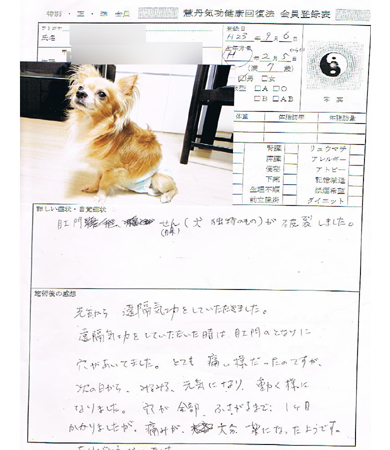 特別・正・準 会員 慧丹気功健康回復法 会員登録表
氏名
登録日
H25年9月6日
生年月日
H 2月5日
(歳 7歳)
男 女
血液型 A O
B AB
写真
体重 体脂肪率 体脂肪量
腎臓 リュウマチ
膵臓 アレルギー
便秘 アトピー
下痢 記憶快復
生理不順 快復希望
前立腺炎 ダイエット
詳しい症状・自覚症状
肛門 せん(犬独特のもの)が破裂しました。
(腺)
施術後の感想
先生から遠隔気功をしていただきました。
遠隔気功をしていただいた時は肛門のとなりに
穴があいてました。とても痛い様だったのですが、
次の日から、みるみる、元気になり、動く様に
なりました。穴が全部、ふさがるまで、1ヶ月
かかりましたが、痛みが、大分、楽になったようです。
ありがとうございました